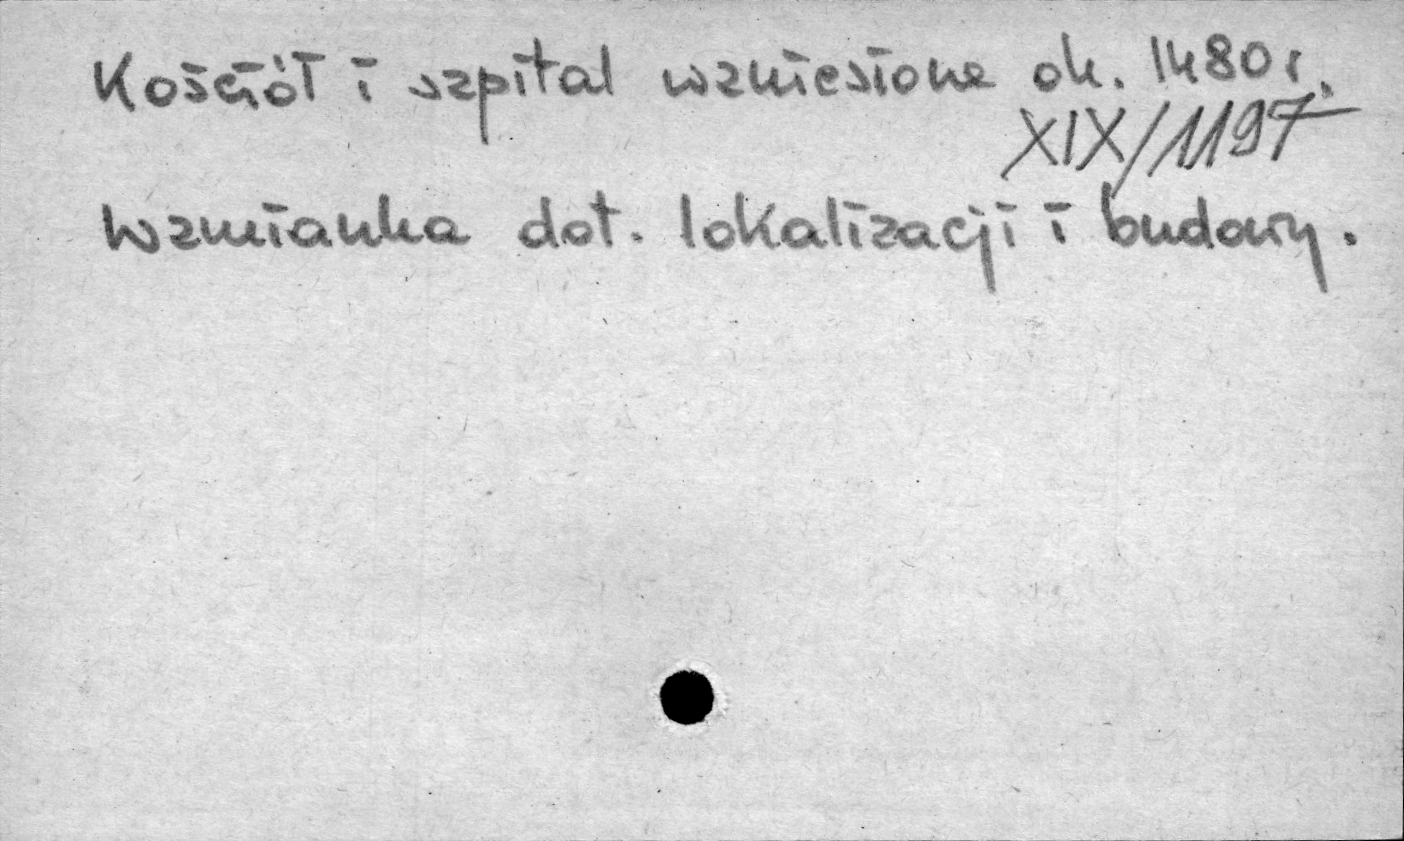 Kościół i szpital wzniesione ok. 1480 r.
XIX/1197
Wzmianka dot. lokalizacji i budowy.